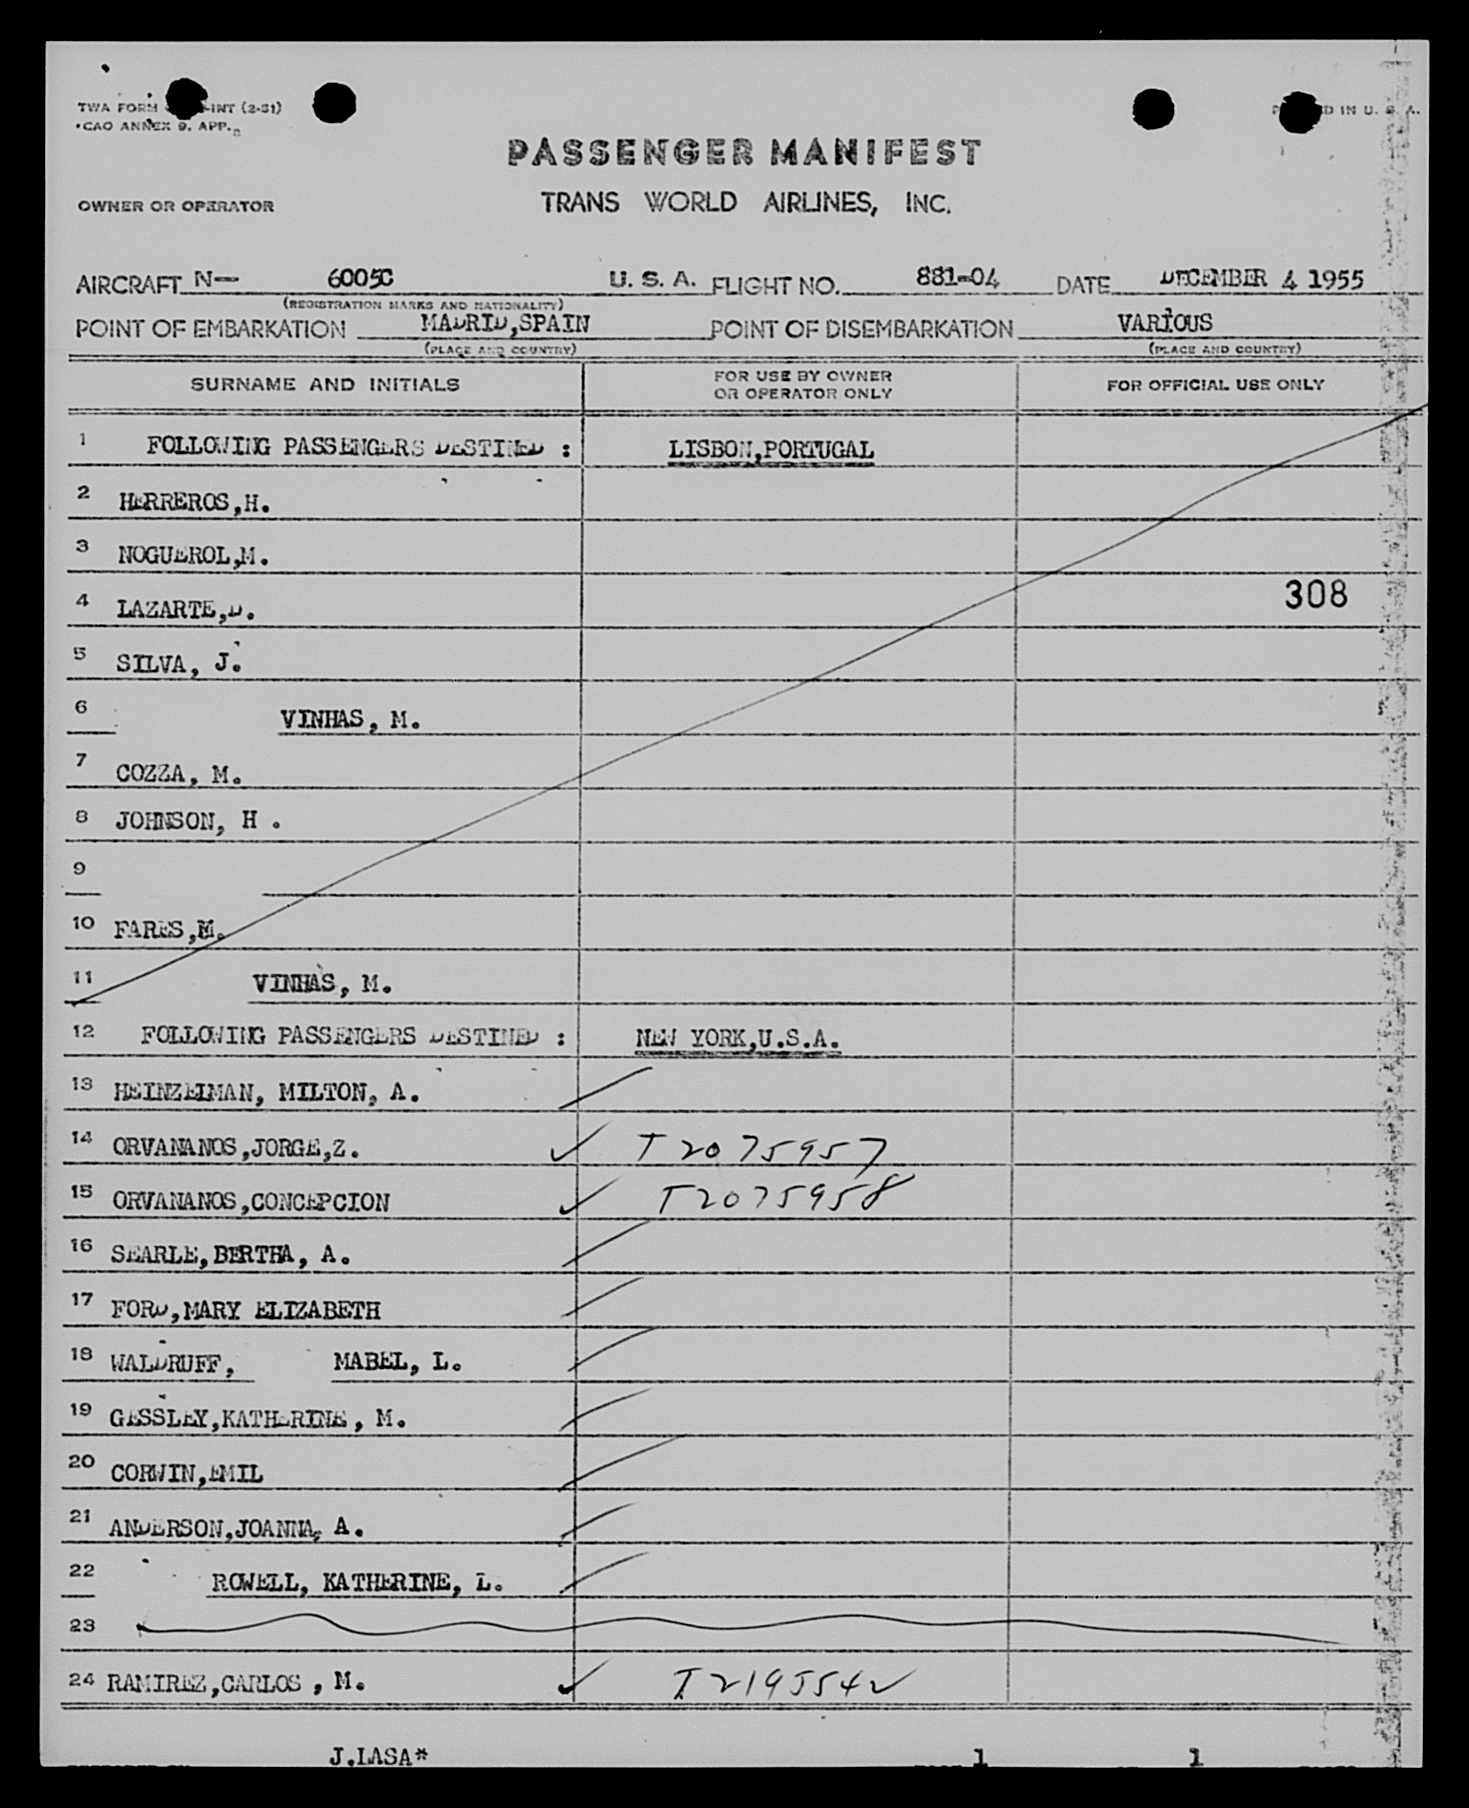 TWA FORM -INT (2-51)
PRINTED IN U. S. A.
ICAO ANNEX 9. APP.
PASSENGER MANIFEST
OWNER OR OPERATOR
TRANS WORLD AIRLINES, INC.
AIRCRAFT N— 6005C U. S. A. FLIGHT NO. 881-04 DATE DECEMBER 4 1955
(REGISTRATION MARKS AND NATIONALITY)
POINT OF EMBARKATION MADRID,SPAIN POINT OF DISEMBARKATION VARIOUS
(PLACE AND COUNTRY) (PLACE AND COUNTRY)
SURNAME AND INITIALS FOR USE BY OWNER OR OPERATOR ONLY FOR OFFICIAL USE ONLY
1 FOLLOWING PASSENGERS DESTINED : LISBON,PORTUGAL
2 HERREROS,H.
3 NOGUEROL,M.
308
4 LAZARTE,D.
5 SILVA, J.
6 VINHAS, M.
7 COZZA, M.
8 JOHNSON, H .
9
10 FARES,M.
11 VINHAS, M.
12 FOLLOWING PASSENGERS DESTINED : NEW YORK,U.S.A.
13 HEINZELMAN, MILTON, A.
14 ORVANANOS,JORGE,Z. ✓ T2075957
15 ORVANANOS,CONCEPCION ✓ T2075958
16 SEARLE,BERTHA, A.
17 FORD,MARY ELIZABETH
18 WALDRUFF, MABEL, L.
19 GESSLEY,KATHERINE, M.
20 CORWIN,EMIL
21 ANDERSON,JOANNA, A.
22 ROWELL, KATHERINE, L.
23
24 RAMIREZ,CARLOS , M. ✓ T2195542
J.LASA* 1 1